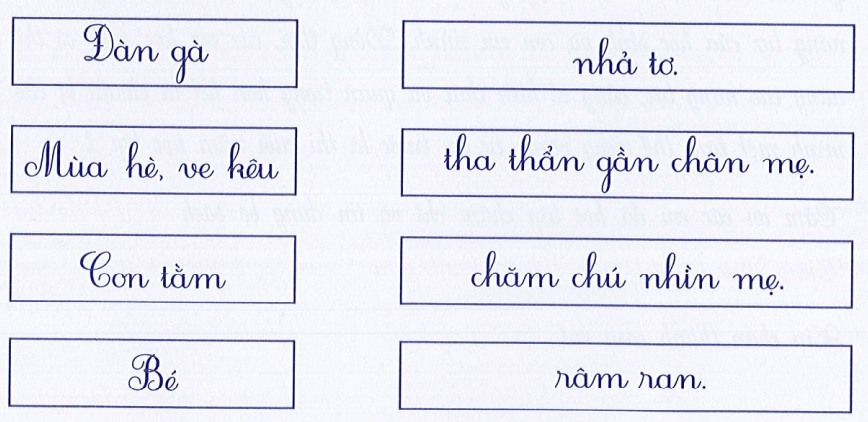 Đàn gà
nhả tơ.
Mùa hè, ve kêu
tha thẩn gần chân mẹ.
Con tằm
chăm chú nhìn mẹ.
Bé
râm ran.